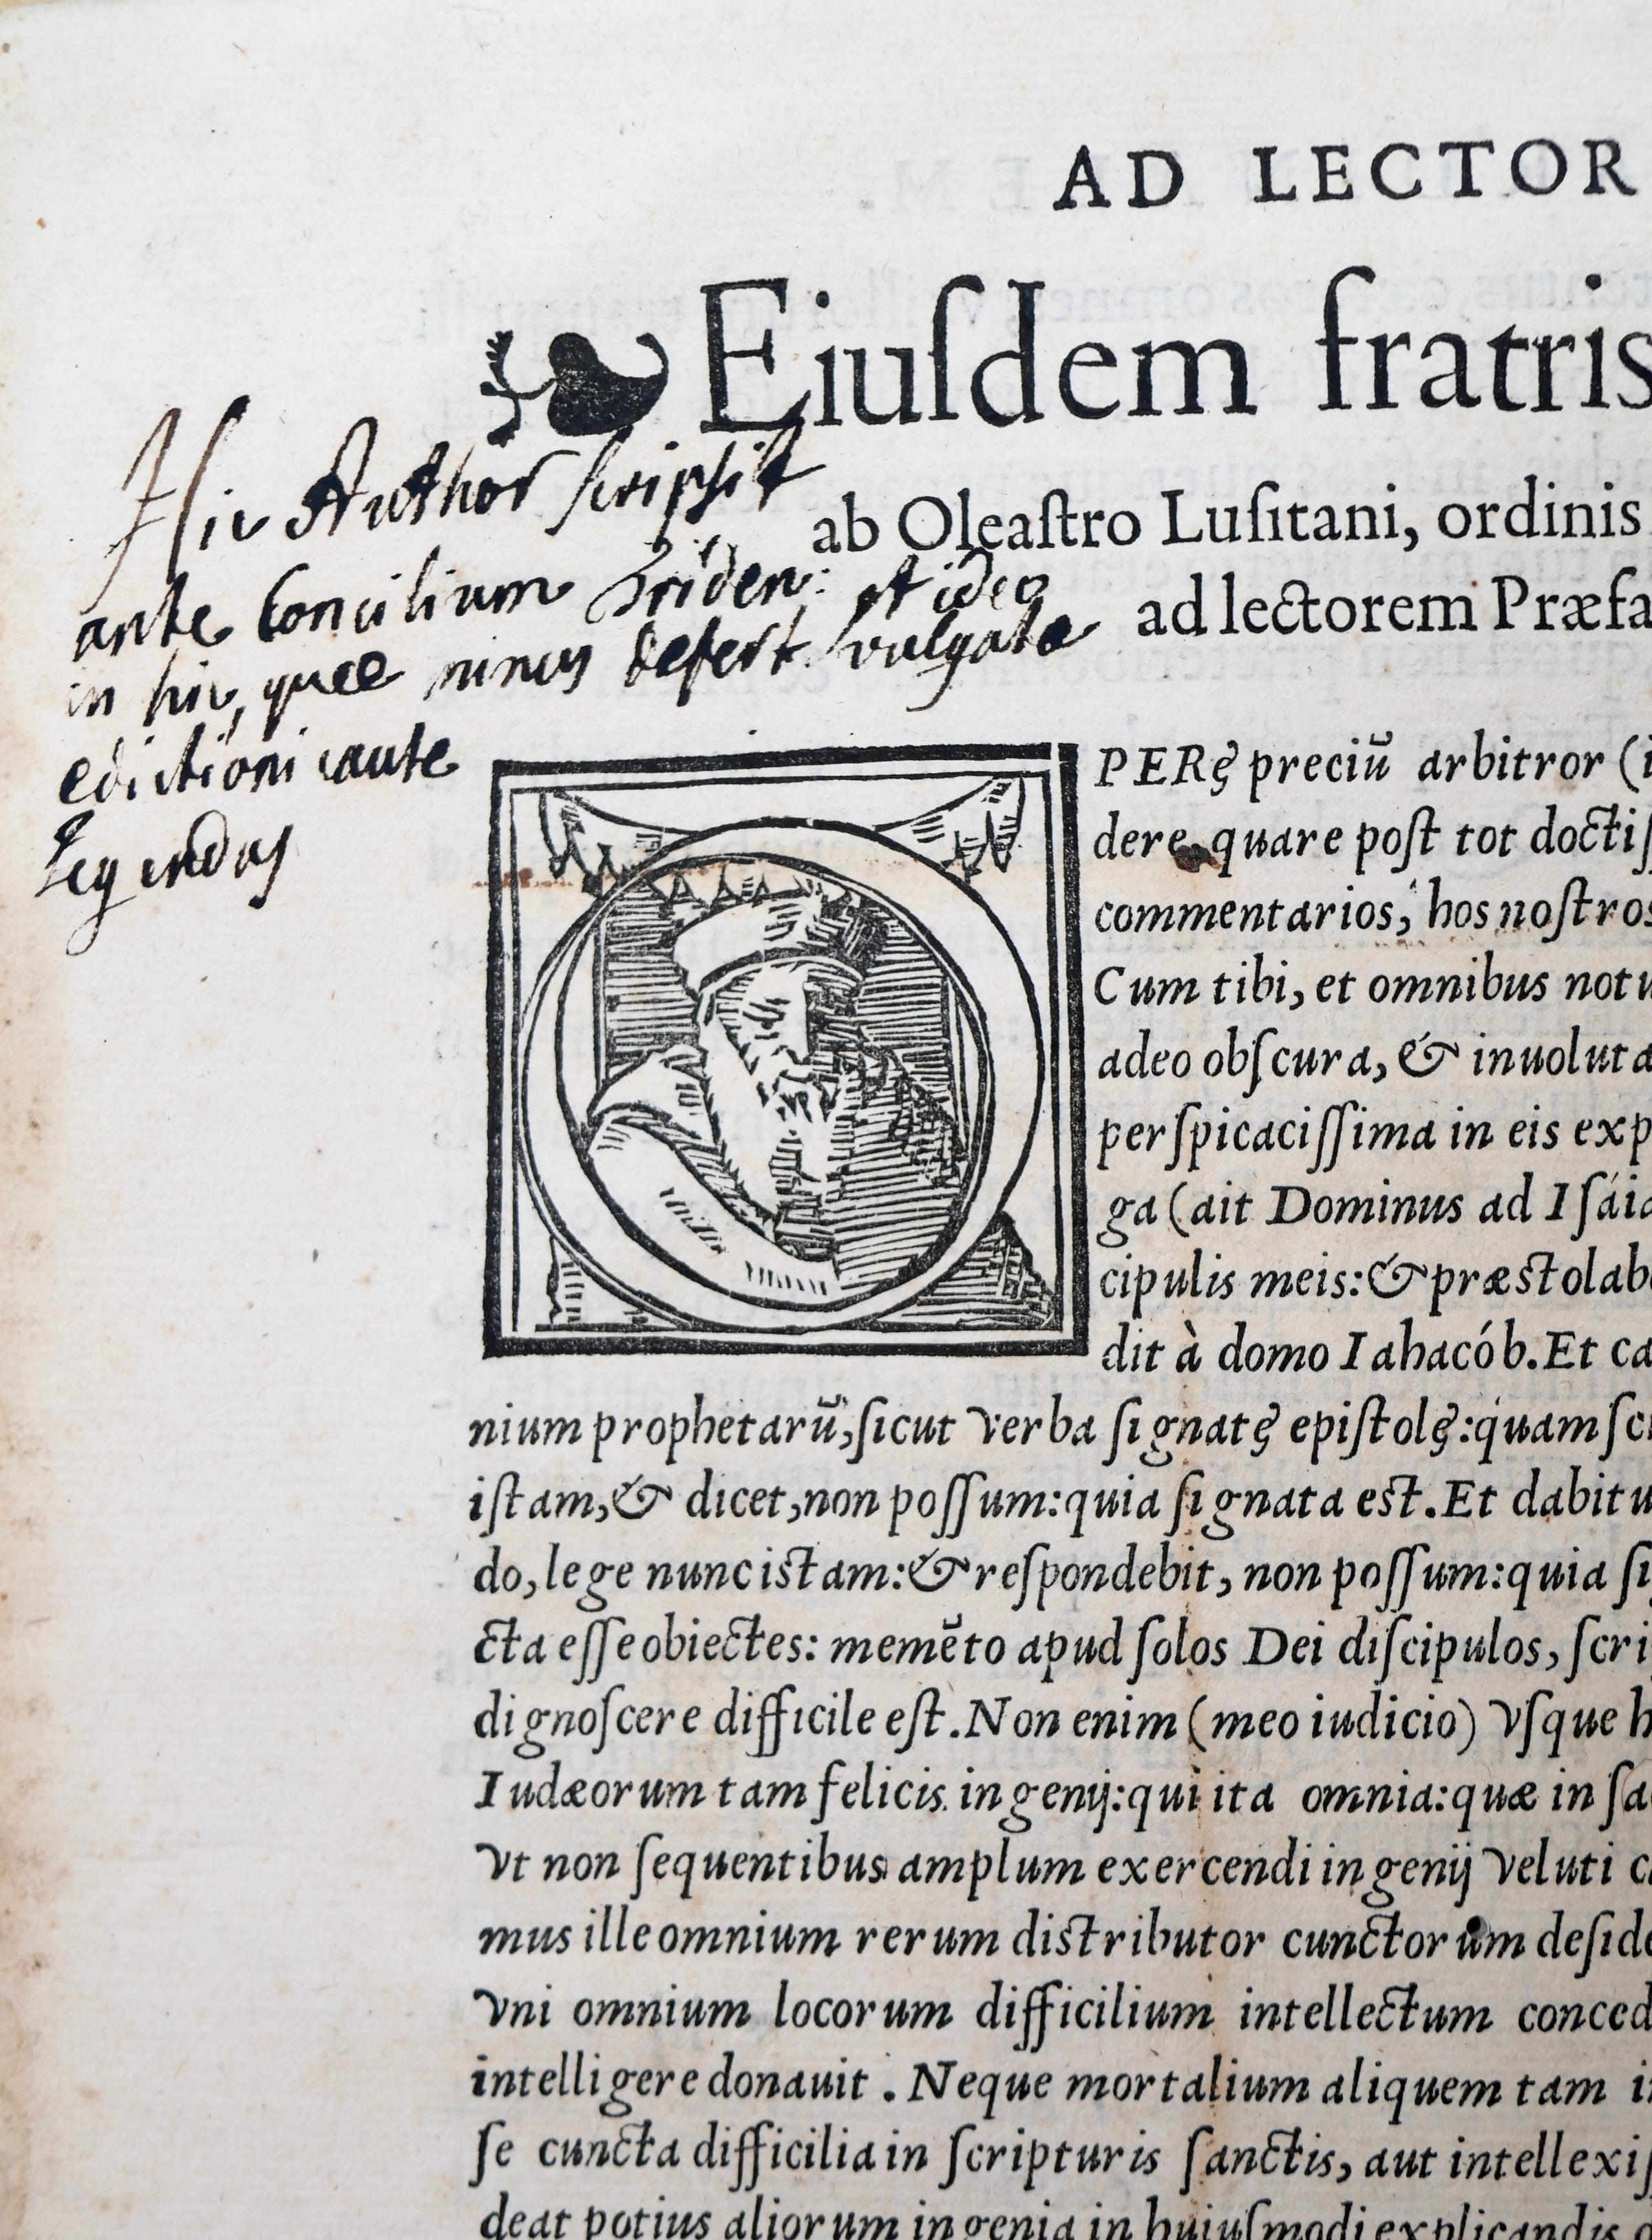 AD LECTOR
Eiuſdem fratris
Hic Author scripsit
ab Oleaſtro Luſitani, ordinis
ante Concilium Triden: et ideo
ad lectorem Præfa
in hiis, quae minus defert vulgatae
edictioni caute
legendus
O
PERę preciũ arbitror (i
dere, quare poſt tot doctiſ
commentarios, hos noſtros
Cum tibi, et omnibus notu
adeo obſcura, & inuoluta
perſpicaciſſima in eis exp
ga (ait Dominus ad Iſáia
cipulis meis: & præſtolab
dit à domo Iahacób. Et ca
nium prophetarũ, ſicut verba ſignatę epiſtolę: quam ſci
iſtam, & dicet, non poſſum: quia ſignata eſt. Et dabitu
do, lege nunc iſtam: & reſpondebit, non poſſum: quia ſi
cta eſſe obiectes: memẽto apud ſolos Dei diſcipulos, ſcri
dignoſcere difficile eſt. Non enim (meo iudicio) vſque h
Iudæorum tam felicis ingenij: qui ita omnia: quæ in ſa
vt non ſequentibus amplum exercendi ingenij veluti c
mus ille omnium rerum diſtributor cunctorum deſide
vni omnium locorum difficilium intellectum conced
intelligere donauit. Neque mortalium aliquem tam i
ſe cuncta difficilia in ſcripturis ſanctis, aut intellexiſ
deat potius aliorum ingenia in huiuſmodi explicandis